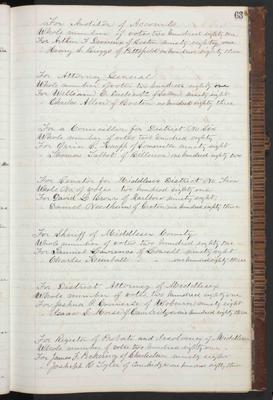 63
For Auditor of Accounts
Whole number of votes two hundred eighty one
For Arthur F. Devereux of Boston ninety eight
Henry S. Briggs of Pittsfield one hundred eighty three
For Attorney General
Whole number of votes two hundred eighty one
For William ninety eight
Charles Allen of Boston one hundred eighty three
For a Councillor for District No Six
Whole number of votes two hundred eighty
For Oren S. Knapp of Somerville ninety eight
Thomas Talbot of Billerica one hundred eighty two
For Senator for Middlesex District No Five
Whole No of votes two hundred eighty one
For David L. Brown of Marlboro ninety eight
Daniel Needham of Groton one hundred eighty three
For Sheriff of Middlesex County
Whole number of votes two hundred eighty one
For Samuel of Lowell ninety eight
Charles Kimball one hundred eighty three
For District Attorney of Middlesex
Whole number of votes two hundred eighty one
For Joshua P. Converse of Woburn ninety eight
Isaac S. Morse of Cambridge one hundred eighty three
For Register of Probate and Insolvency of Middlesex
Whole number of votes two hundred eighty one
For James F. of Charlestown ninety eight
Joseph H. Tyler of Cambridge one hundred eighty three